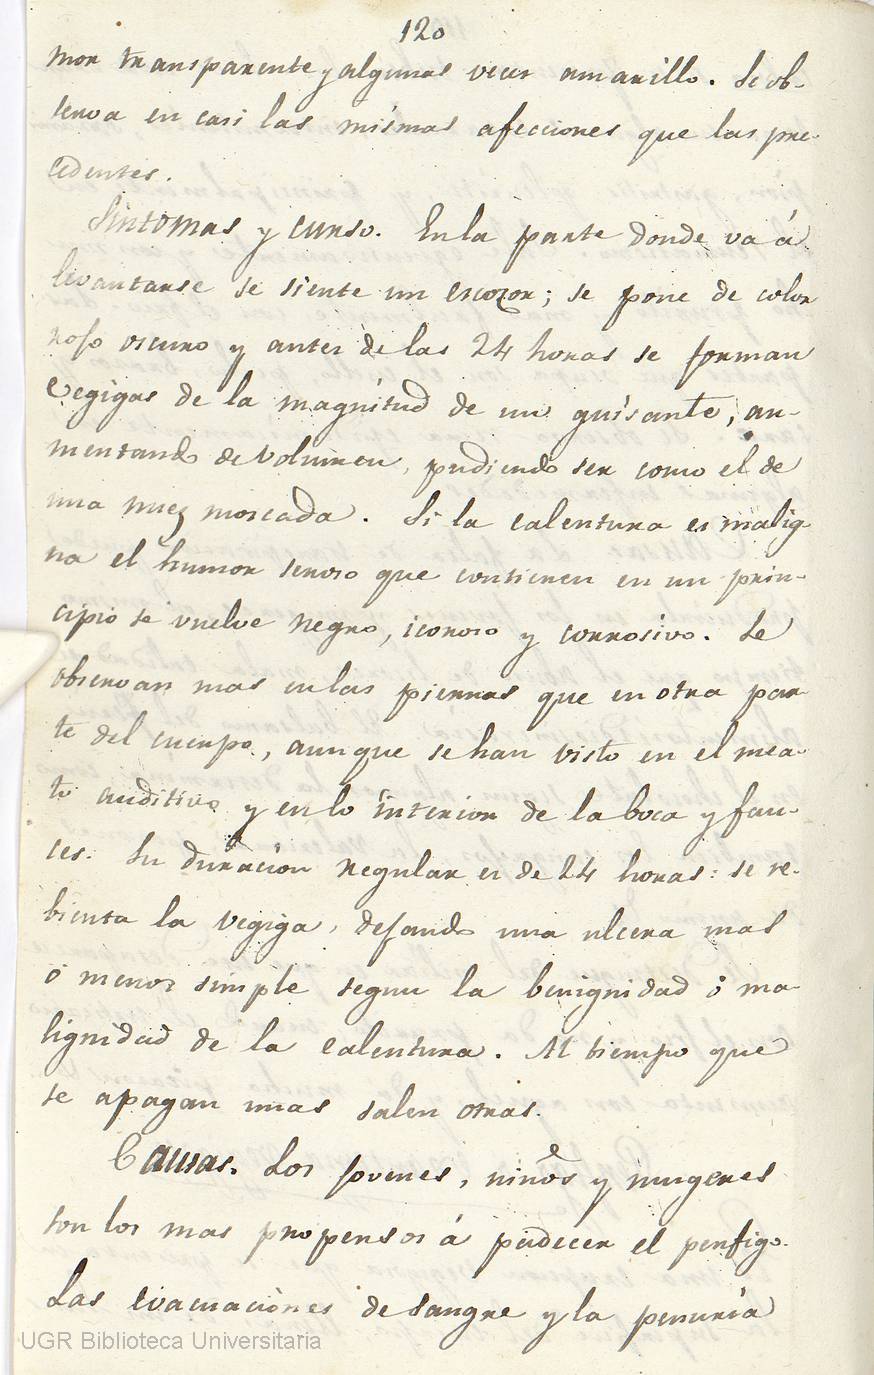 120
mor transparente y algunas veces amarillo. Se ob-
serva en casi las mismas afecciones que las pre-
cedentes.
Síntomas y curso. En la parte donde va á
levantarse se siente un escozor; se pone de color
rojo oscuro y antes de las 24 horas se forman
vegigas de la magnitud de un guisante, au-
mentando de volumen, pudiendo ser como el de
una nuez moscada. Si la calentura es malig-
na el humor seroso que contienen en un prin-
cipio se vuelve negro, icoroso y corrosivo. Se
observan mas en las piernas que en otra par-
te del cuerpo, aunque se han visto en el mea-
to auditivo y en lo interior de la boca y fau-
ces. Su duracion regular es de 24 horas: se re-
bienta la vegiga, dejando una ulcera mas
ó menos simple segun la benignidad ó ma-
lignidad de la calentura. Al tiempo que
se apagan unas salen otras.
Causas. Los jovenes, niños y mugeres
son los mas propensos á padecer el penfigo.
Las evacuaciones de sangre y la penuria
UGR Biblioteca Universitaria